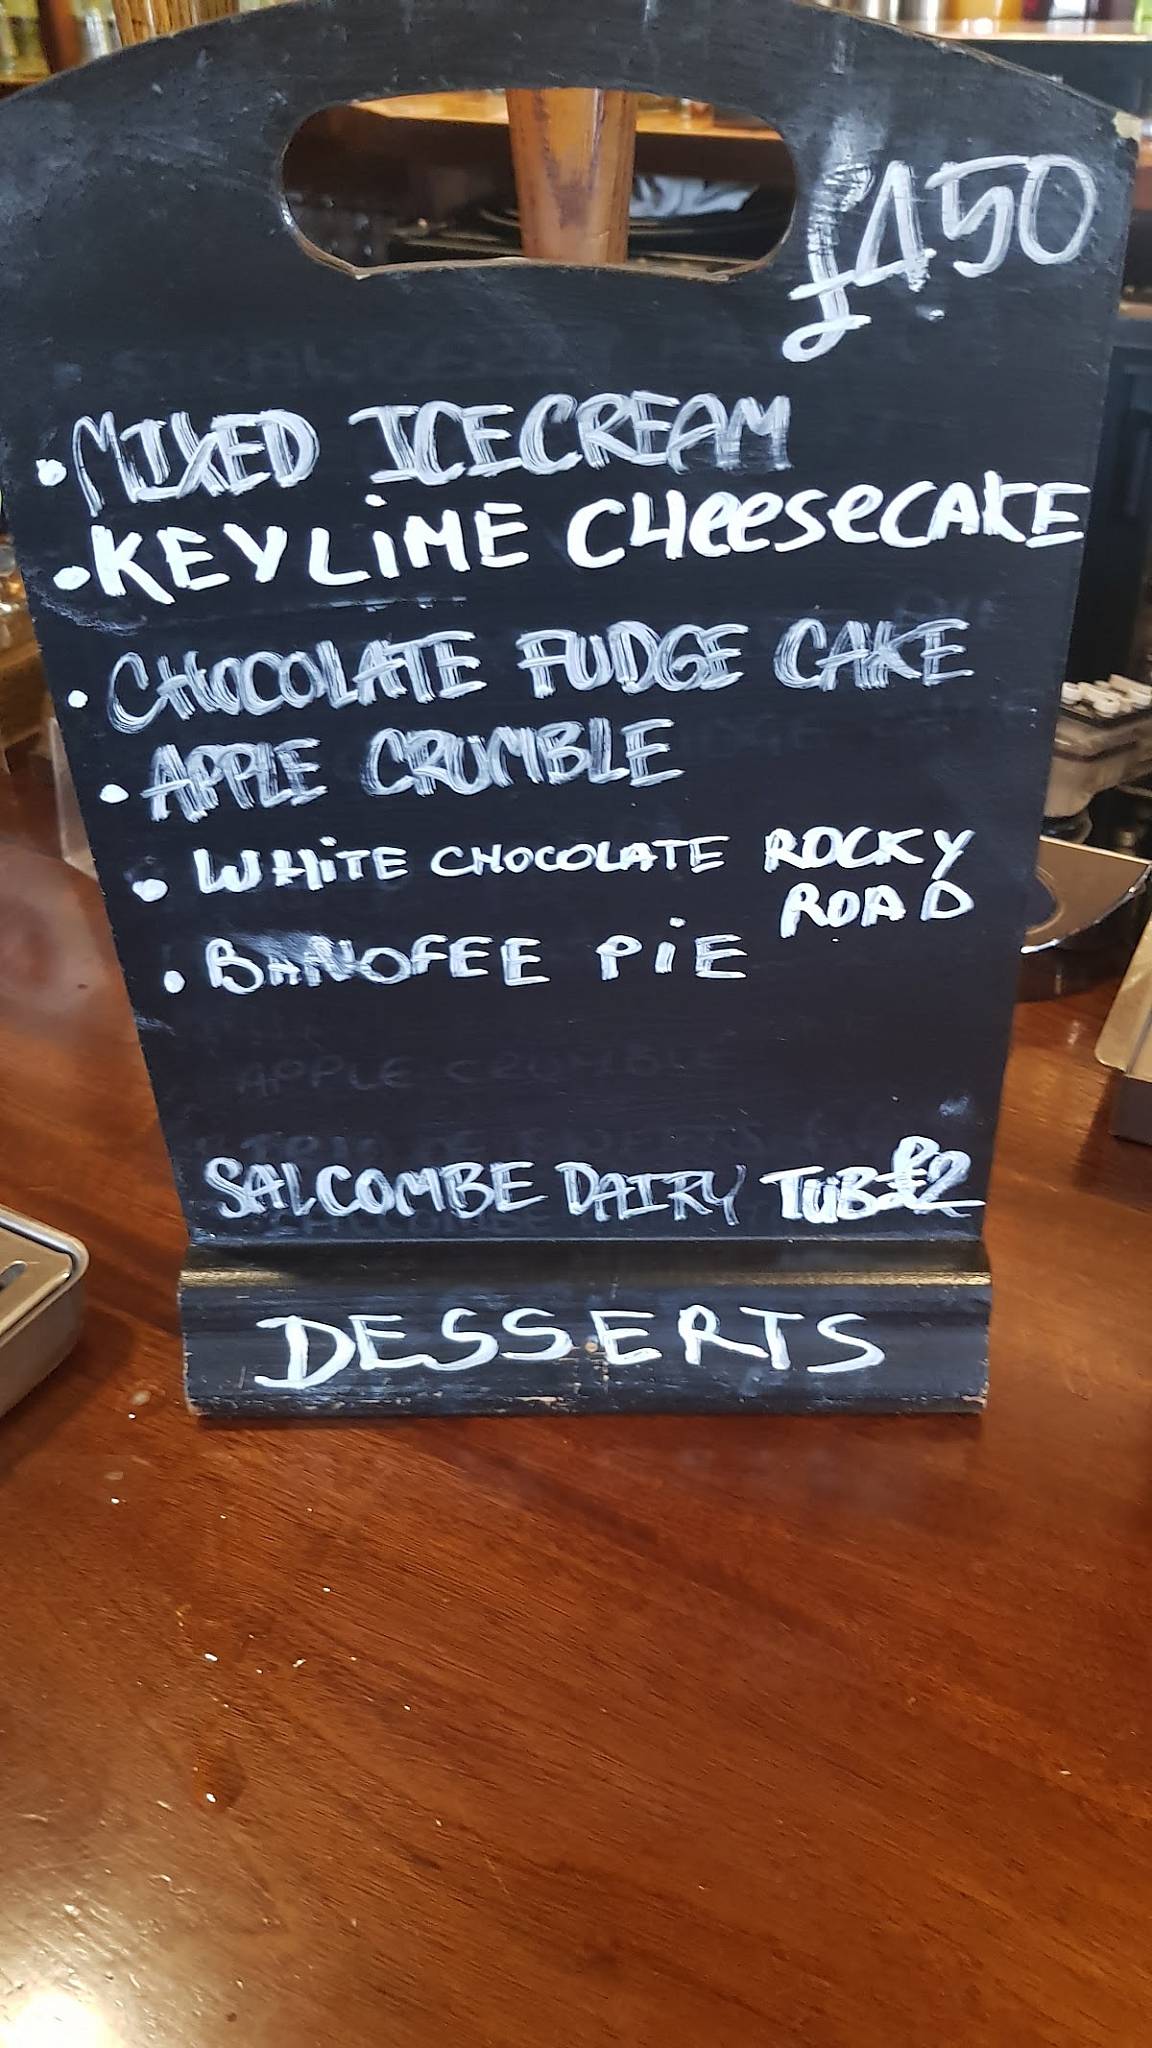 £450
• MIXED ICECREAM
• KEYLiME CHeeseCAKE
• CHOCOLATE FUDGE CAKE
• APPLE CRUMBLE
• WHiTE CHOCOLATE ROCKY
ROAD
• BANOFEE PiE
APPLE CRUMBLE
SALCOMBE DAIRY TUB £2
DESSERTS